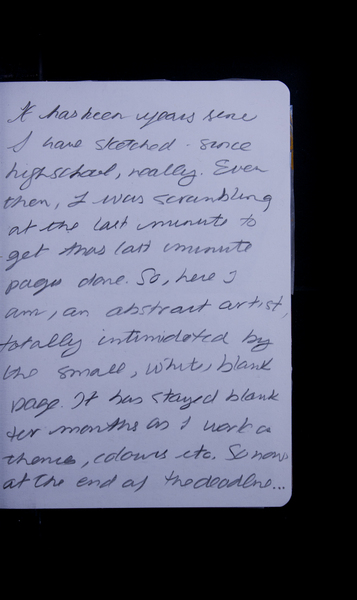 It has been years since
I have sketched - since
highschool, really. Even
then, I was scrambling
at the last minute to
get this last minute
pages done. So, here I
am, an abstract artist,
totally intimidated by
the small, white, blank
page. It has stayed blank
for months as I work a
theme, colours etc. So now
at the end of the deadline...